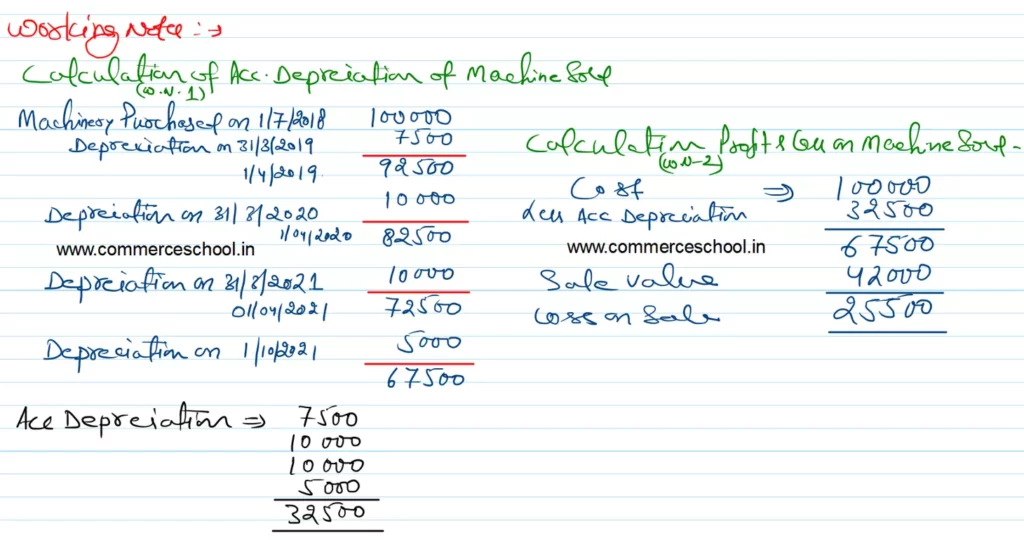 Working Note :→
Calculation of Acc. Depreciation of Machine Sold
(W.N.1)
Machinery Purchased on 1/7/2018 100000
Depreciation on 31/3/2019 7500
1/4/2019 92500
Depreciation on 31/3/2020 10000
1/04/2020 82500
www.commerceschool.in
Depreciation on 31/3/2021 10000
01/04/2021 72500
Depreciation on 1/10/2021 5000
67500
Acc Depreciation ⇒ 7500
10000
10000
5000
32500
Calculation Profit & Loss on Machine Sold -
(W.N-2)
Cost ⇒ 100000
Less Acc Depreciation 32500
www.commerceschool.in 67500
Sale Value 42000
Loss on Sale 25500